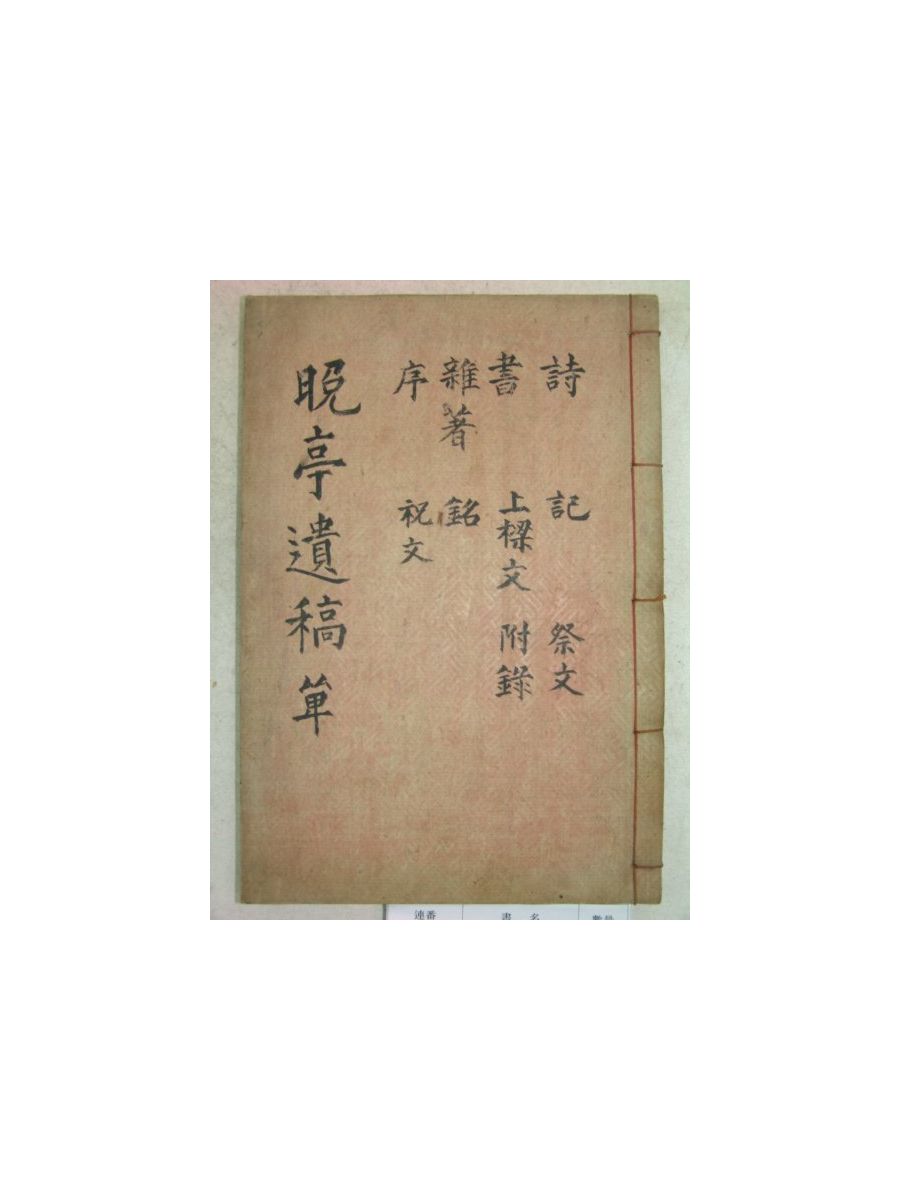 詩 記 祭文
書 上樑文 附錄
雜著 銘
序 祝文
晩亭遺稿 單
連番 書名